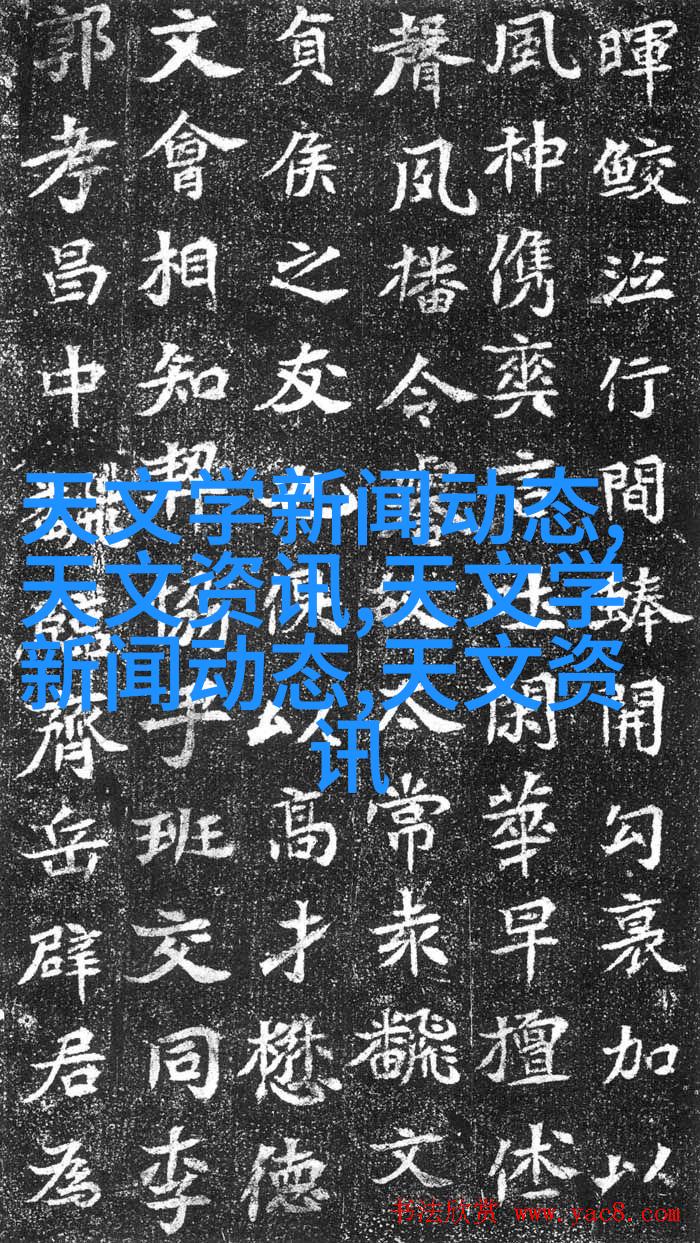 暉鮫泣行間蜯開勾裏加以
風神儁奕言閑華早擅
聲風播令太常文
侯之友以高才懋德
文會相知契班交同李
郭孝昌中魏齊岳辟君為
天文学新闻动态,
天文资讯,天文学
新闻动态,天文资
讯
书法欣赏 www.yac8.com